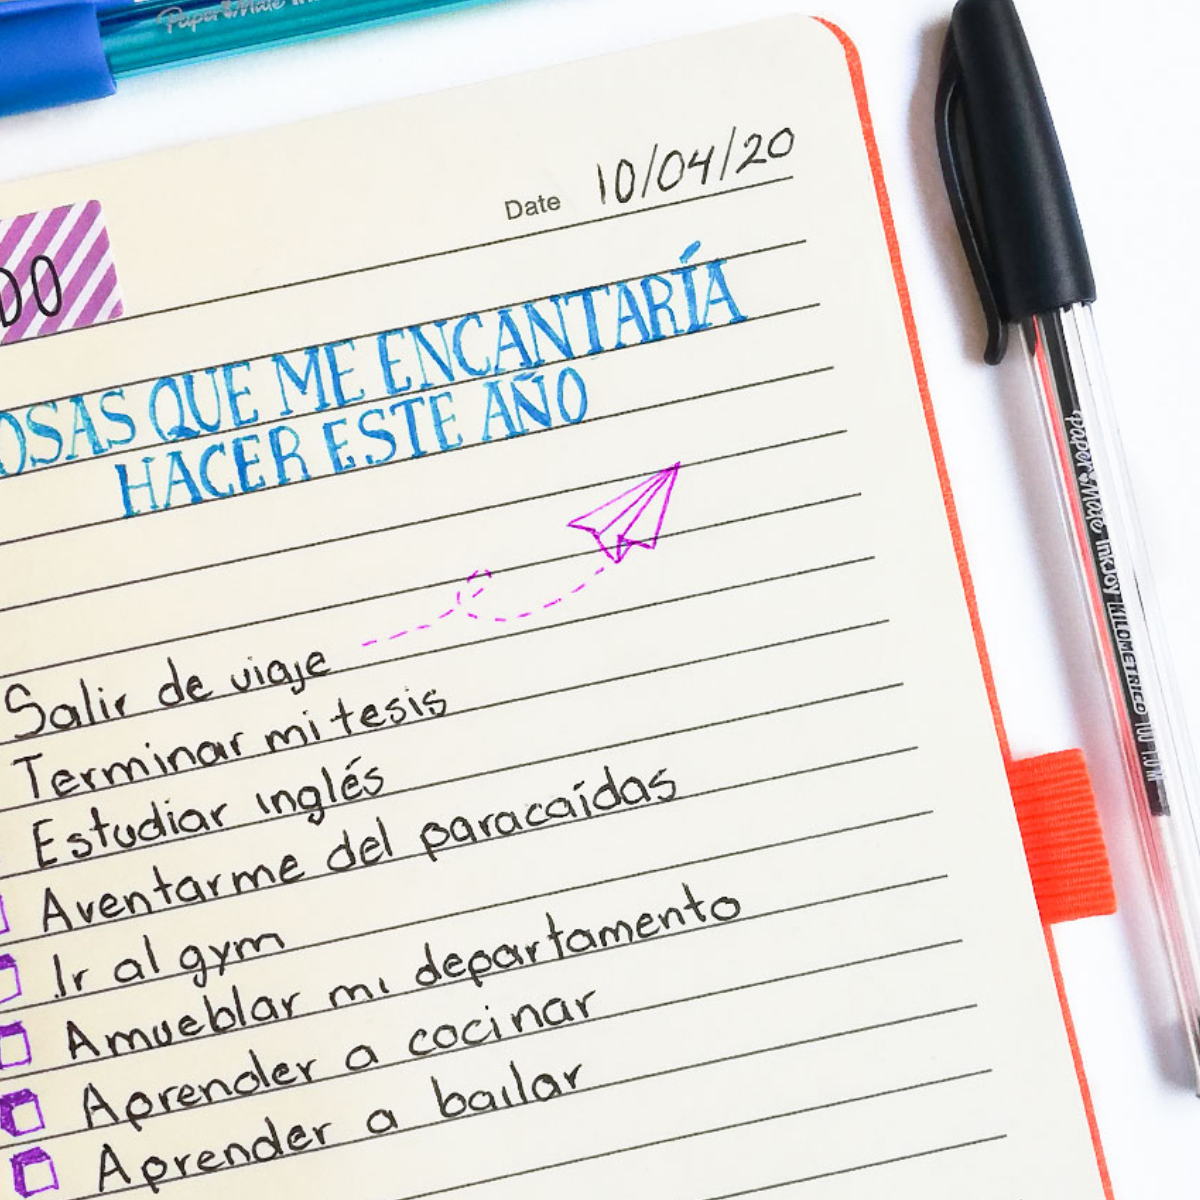 Paper Mate
Date 10/04/20
DO
OSAS QUE ME ENCANTARÍA
HACER ESTE AÑO
Salir de viaje
Terminar mi tesis
Estudiar inglés
Aventarme del paracaídas
Ir al gym
Amueblar mi departamento
Aprender a cocinar
Aprender a bailar
paper Mate InkJoy KILOMETRICO